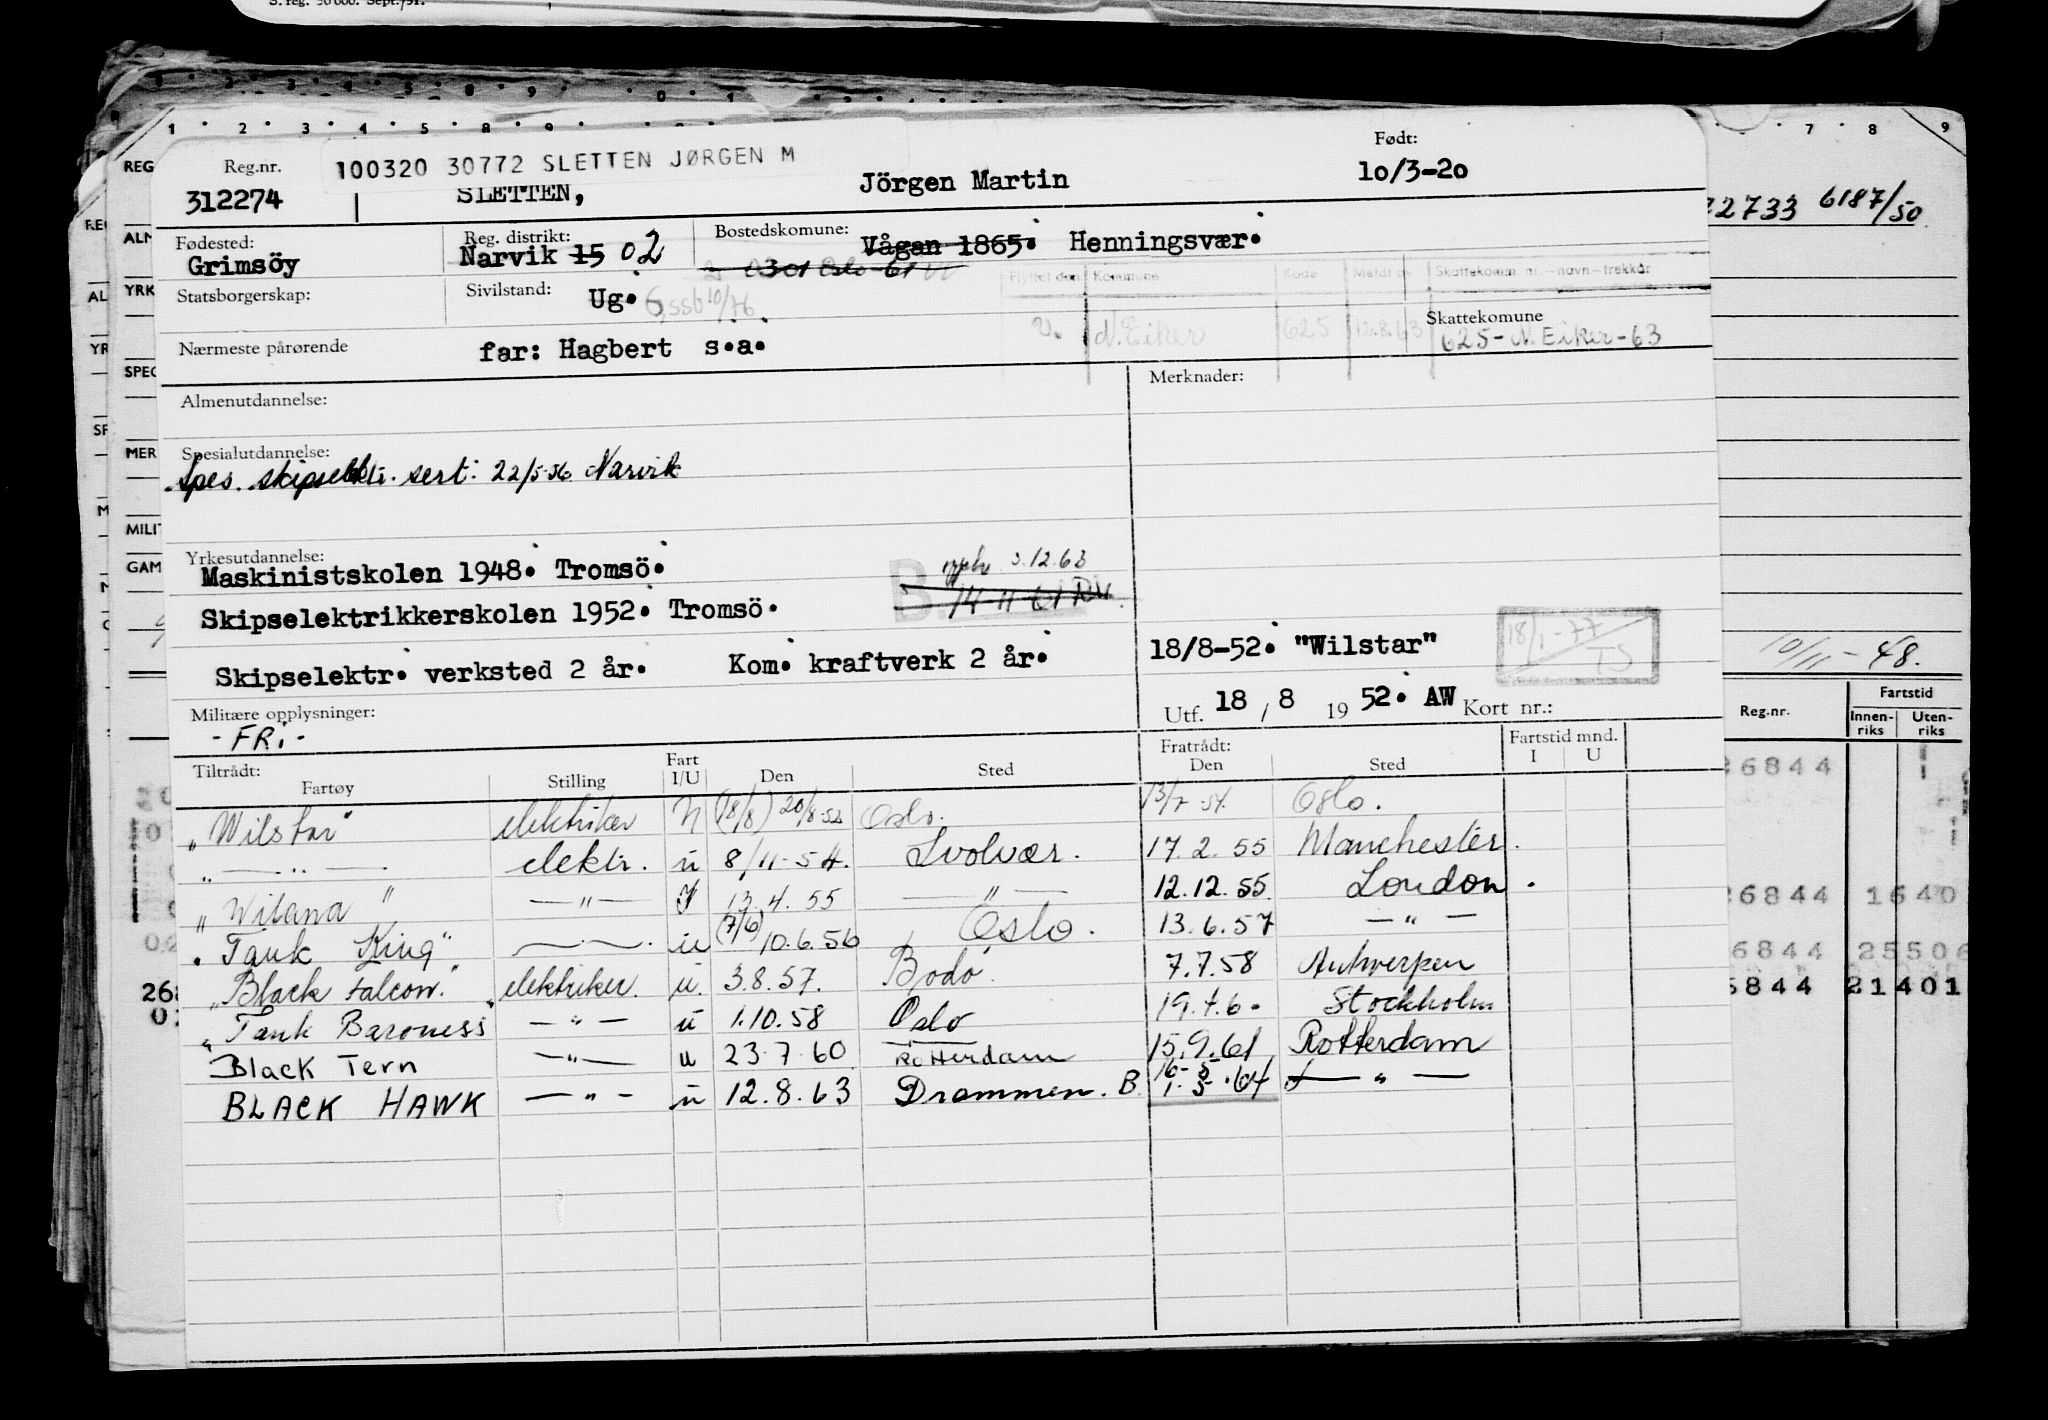 S. reg. 50 000. Sept./51.
1 2 3 4 5 8 9
7 8 9
Reg.nr. 100320 30772 SLETTEN JØRGEN M Født:
312274 SLETTEN, Jörgen Martin 10/3-20
22733 6187/50
Fødested: Reg. distrikt: Bostedskomune:
Grimsöy Narvik 15 02 Vågan 1865. Henningsvær.
0301 Oslo-61
Flyttet den Kommune Kode Meldt av Skattekomm. nr.-navn-trekkår
Statsborgerskap: Sivilstand: Ug. Gssb 10/76
N. Eiker 625 12.8.63
Skattekomune
625-N. Eiker-63
Nærmeste pårørende far: Hagbert s.a.
Merknader:
Almenutdannelse:
Spesialutdannelse:
Spes. skipselektr. sert. 22/5-56 Narvik
Yrkesutdannelse:
Maskinistskolen 1948. Tromsö.
3.12.63
B. 14-11-61
Skipselektrikkerskolen 1952. Tromsö.
Skipselektr. verksted 2 år. Kom. kraftverk 2 år.
18/8-52. "Wilstar"
18/1-77 TS
10/11-48.
Utf. 18/8 1952. AW Kort nr.:
Militære opplysninger:
-FRI-
Reg.nr. Fartstid
Innenriks Utenriks
Tiltrådt: Fart Fratrådt: Fartstid mnd.
Fartøy Stilling I/U Den Sted Den Sted I U
"Wilstar" elektriker N (18/8) 20/8-52 Oslo. 13/7-54. Oslo.
" — " — elektr. u 8/11-54. Svolvær. 17.2.55 Manchester.
"Wilana" — " — 13.4.55 — " — 12.12.55. London.
"Tank King" — " — u (7/6) 10.6.56 Oslo. 13.6.57 — " —
"Black Falcon." elektriker. u. 3.8.57. Bodø. 7.7.58 Antwerpen
"Tank Baroness" — " — u 1.10.58 Oslo 19.4.60 Stockholm
Black Tern — " — u 23.7.60 Rotterdam 15.9.61 Rotterdam
BLACK HAWK — " — u 12.8.63 Drammen. B. 16-5 1.5.64 — " —
26844
26844 1640
6844 25506
6844 21401